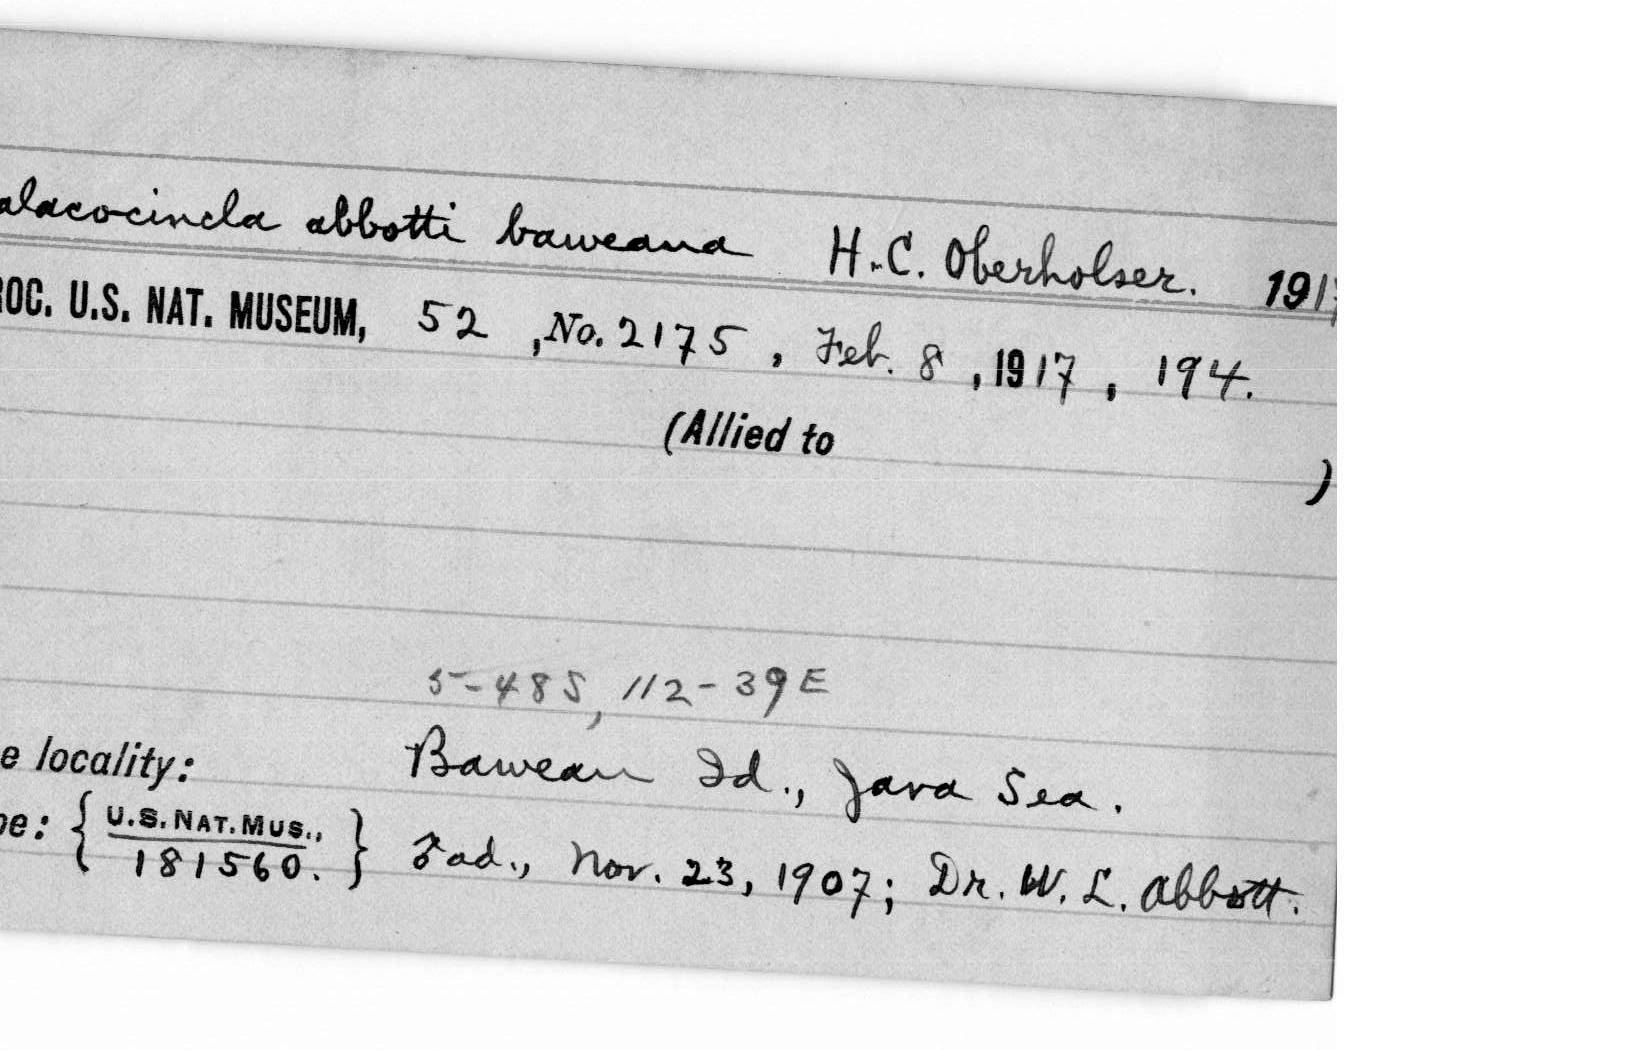 alacocincla abbotti baweana H.C. Oberholser. 1917
ROC. U.S. NAT. MUSEUM, 52, No. 2175, Feb. 8, 1917, 194.
(Allied to )
5-48S, 112-39E
e locality: Bawean Id., Java Sea.
pe: { U.S. NAT. MUS., 181560. } ♀ ad., Nov. 23, 1907; Dr. W. L. Abbott.